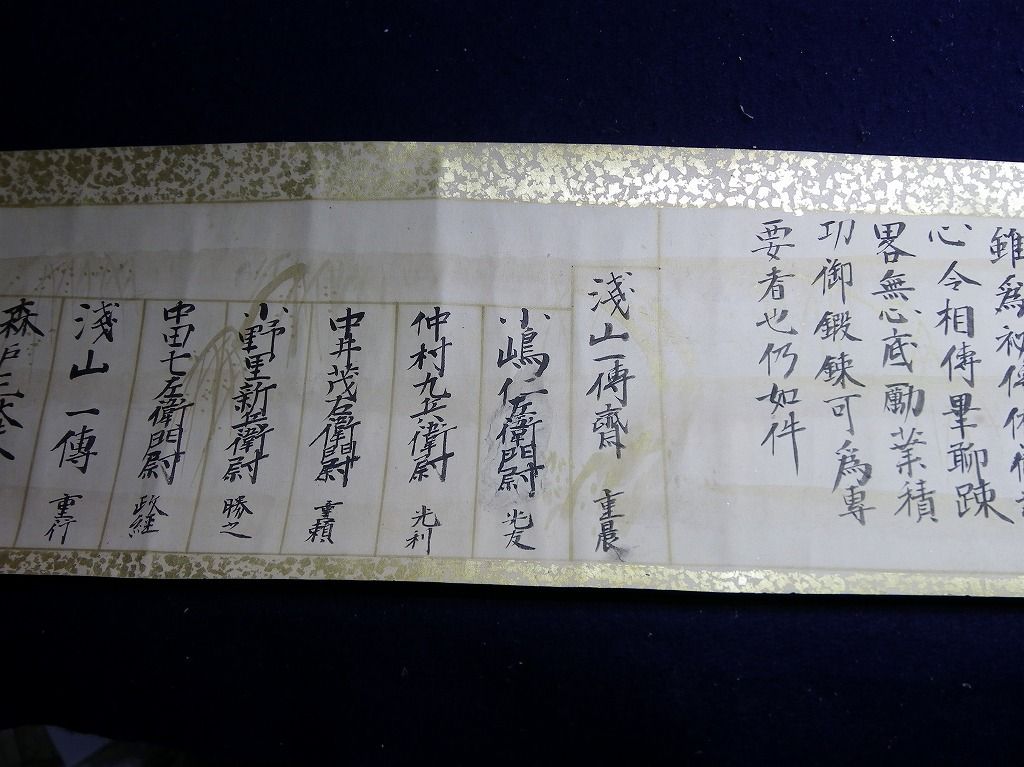 雖為祕傳依
心令相傳畢聊踈
畧無心底勵業積
功御鍛錬可為專
要者也仍如件
淺山一傳齋 重晨
小嶋仁左衛門尉 光友
仲村九兵衛尉 光利
中井茂右衛門尉 重頼
小野里新兵衛尉 勝之
中田七左衛門尉 政経
淺山一傳 重行
森戸三太夫